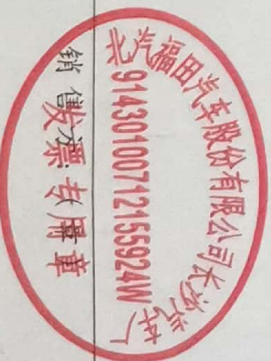 北汽福田汽车股份有限公司长沙汽车厂
91430100712155924W
发票专用章
销售方: